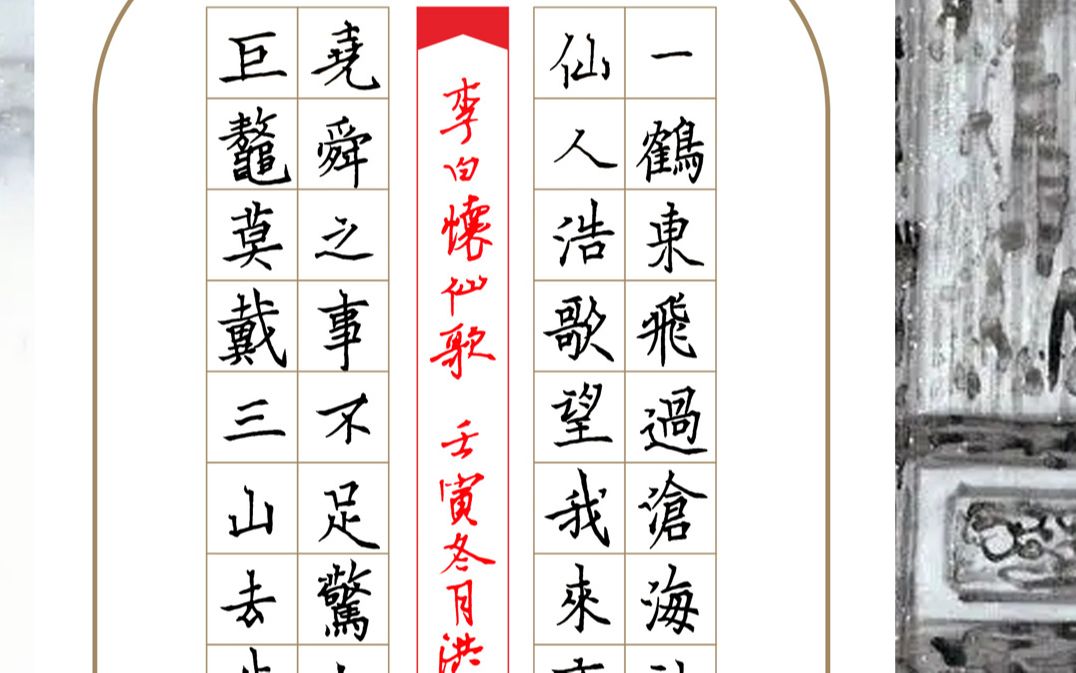 一鶴東飛過滄海
仙人浩歌望我來
李白懷仙歌 壬寅冬月洪
堯舜之事不足驚
巨鼇莫戴三山去